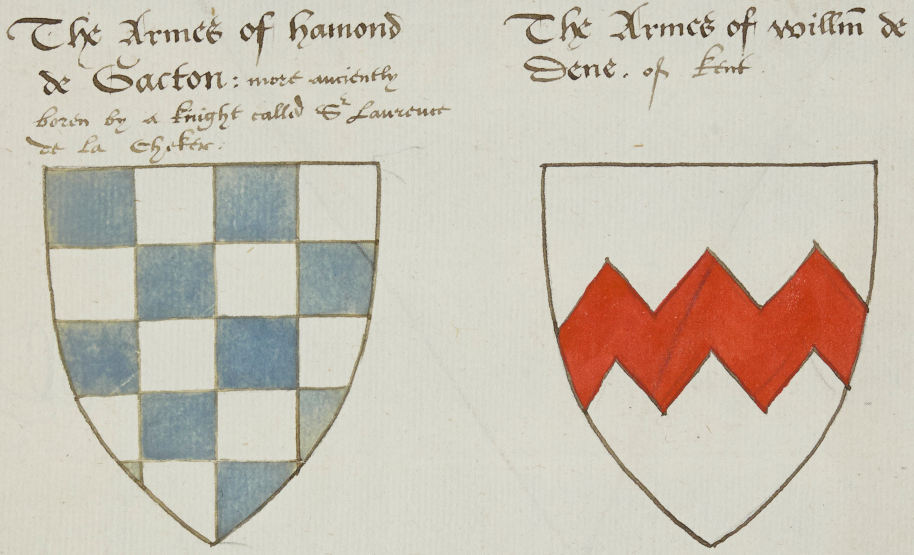 The Armes of hamond
de Gacton: more anciently
boren by a knight called Sr Laurence
de la Cheker.
The Armes of willm̄ de
Dene. of kent